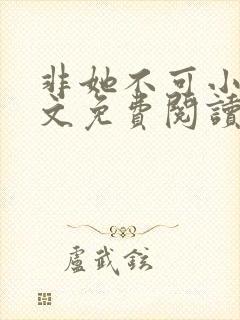 非她不可小
文免費閱讀
盧武鉉